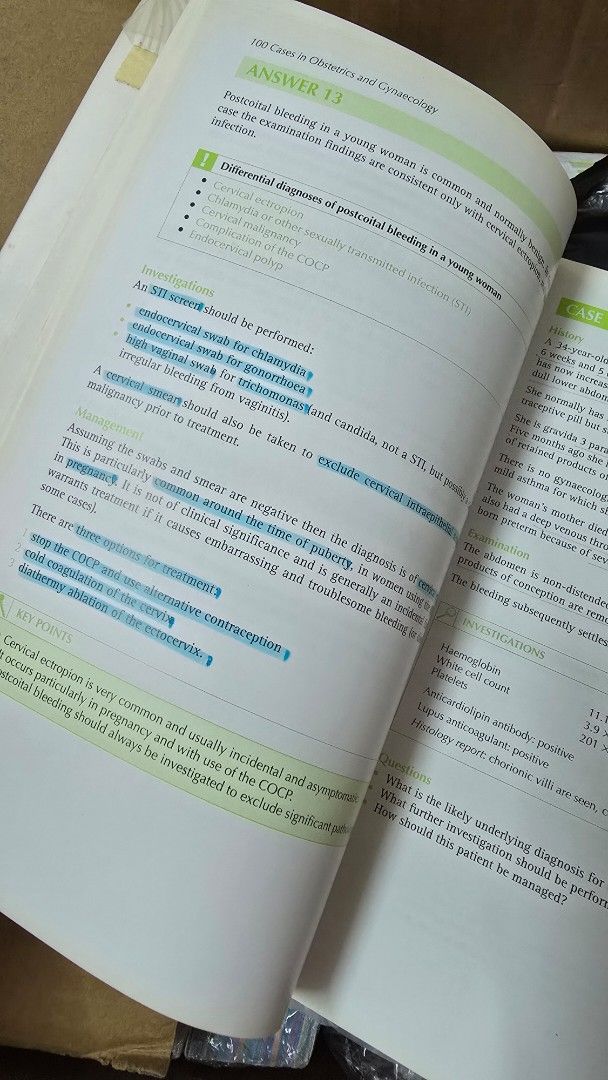 100 Cases in Obstetrics and Gynaecology
ANSWER 13
Postcoital bleeding in a young woman is common and normally benign.
case the examination findings are consistent only with cervical ectropion
infection.
! Differential diagnoses of postcoital bleeding in a young woman
• Cervical ectropion
• Chlamydia or other sexually transmitted infection (STI)
• Cervical malignancy
• Complication of the COCP
• Endocervical polyp
Investigations
An STI screen should be performed:
• endocervical swab for chlamydia
• endocervical swab for gonorrhoea
• high vaginal swab for trichomonas (and candida, not a STI, but
irregular bleeding from vaginitis).
A cervical smear should also be taken to exclude cervical
malignancy prior to treatment.
Management
Assuming the swabs and smear are negative then the diagnosis is of
This is particularly common around the time of puberty, in women using
in pregnancy. It is not of clinical significance and is generally an incidental
warrants treatment if it causes embarrassing and troublesome bleeding
some cases).
There are three options for treatment:
1 stop the COCP and use alternative contraception
2 cold coagulation of the cervix
3 diathermy ablation of the ectocervix.
KEY POINTS
Cervical ectropion is very common and usually incidental and asymptomatic
It occurs particularly in pregnancy and with use of the COCP.
Postcoital bleeding should always be investigated to exclude significant
CASE
History
A 34-year-old
6 weeks and 5
has now increas
dull lower abdom
She normally has
traceptive pill but s
She is gravida 3 para
Five months ago she
of retained products o
There is no gynaecolog
mild asthma for which sh
The woman's mother died
also had a deep venous thr
born preterm because of sev
Examination
The abdomen is non-distende
products of conception are reme
The bleeding subsequently settles
INVESTIGATIONS
Haemoglobin 11.
White cell count 3.9 ×
Platelets 201 ×
Anticardiolipin antibody: positive
Lupus anticoagulant: positive
Histology report: chorionic villi are seen, c
Questions
• What is the likely underlying diagnosis for
• What further investigation should be perform
• How should this patient be managed?